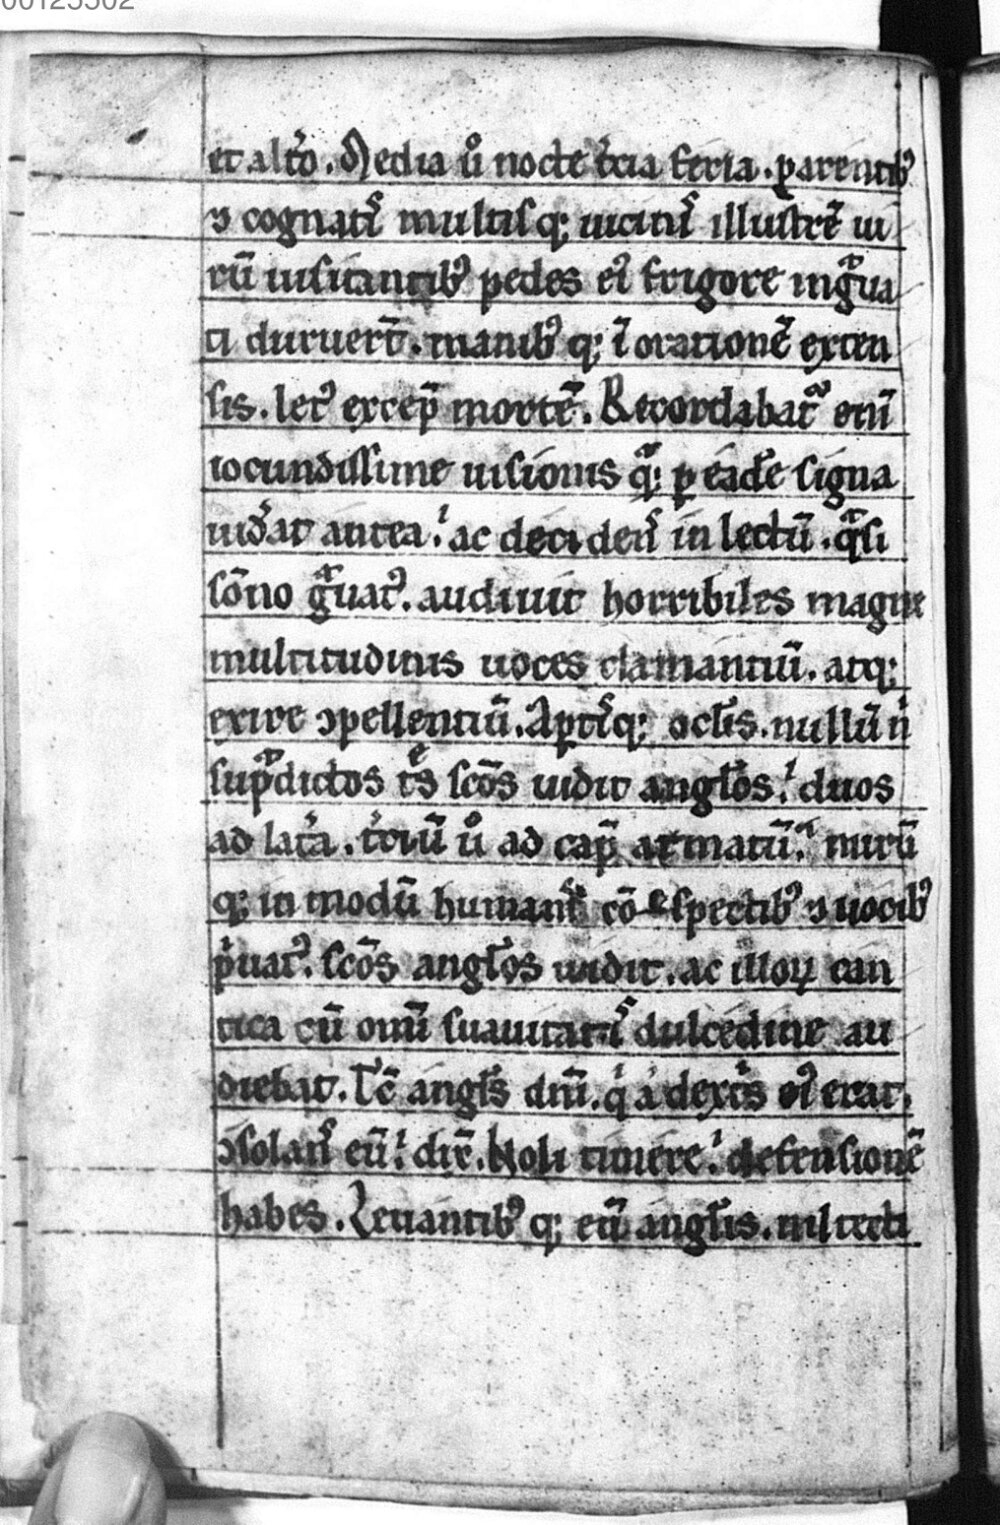 00125302
et alt̉o. Media u̾ nocte t̾cia feria. parentib⁹
⁊ cognatis multisq; uicinis illustrē ui
rū uisitantib⁹ pedes ei⁹ frigore ingͣua
ti duruerͭ. manib⁹ q; ī orationē exten
sis. let⁹ excep̄ mortē. Recordabat̃ eni̅
iocundissime uisionis qͣ; p̱ eadē signa
uid̾at antea. ac decidens in lectū. qͣsi
sōno gͣuat⁹. audiuit horribiles magne
multitudinis uoces clamantiū. atq;
exire ꝯpellentiū. Aptisq; oclis. nullū n̍
sup̄dictos t̾s sc̄os uidit angl̄os. duos
ad lat̾a. t̾ciū u̾ ad cap̄ armatū. mirū
q; in modū humanis cōspectib⁹ ⁊ uocib⁹
p̍uat⁹. sc̄os angl̄os uidit. ac illoꝝ can
tica cū om̄i suauitatis dulcedine au
diebat. Tc̄ angl̄s dn̄i. q̍ a dext̾s ei⁹ erat.
ꝯsolans eū. dix̄. Noli timere. defensionē
habes. Leuantib⁹ q; eū angl̄is. nil tecti